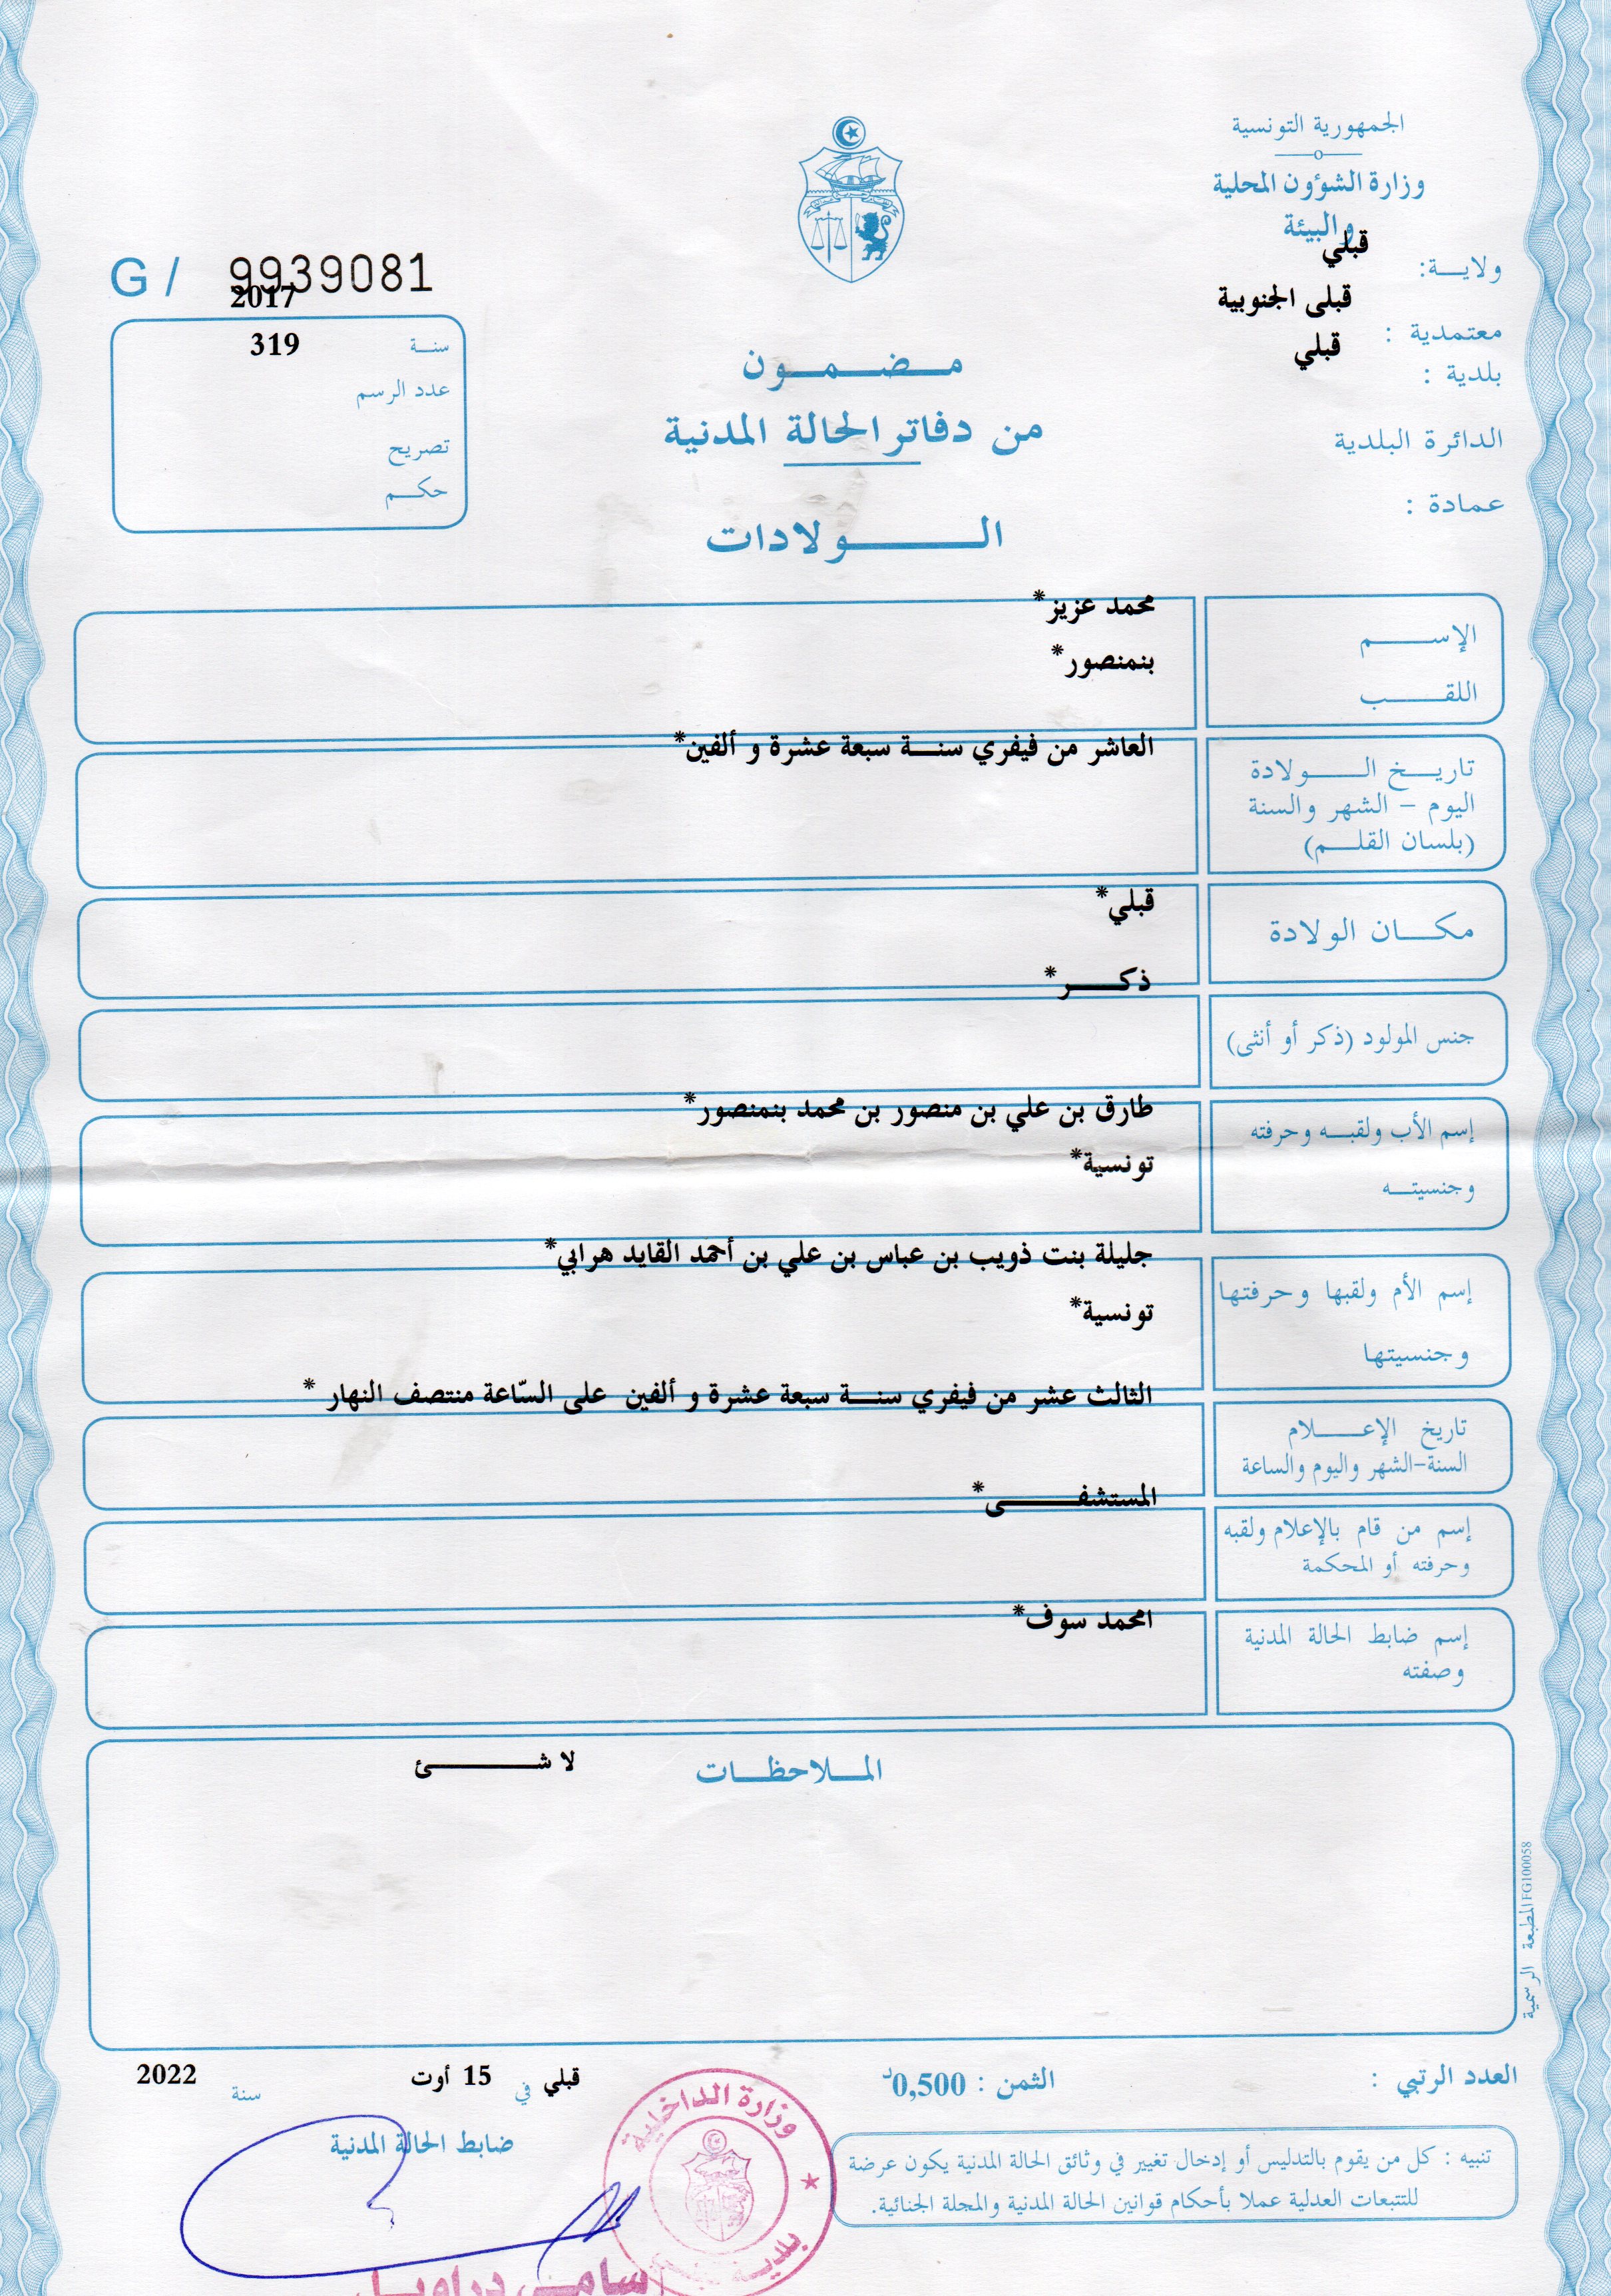 الجمهورية التونسية
وزارة الشؤون المحلية
والبيئة
ولايــة: قبلي
معتمدية : قبلى الجنوبية
بلدية : قبلي
الدائرة البلدية
عمادة :
G / 9939081
سنـة 2017
عدد الرسم 319
تصريح
حكـم
مـضـمـون
من دفاتر الحالة المدنية
الـــولادات
الإســـم محمد عزيز*
اللقـــب بنمنصور*
تاريـخ الـــولادة العاشر من فيفري سنـة سبعة عشرة و ألفين*
اليوم – الشهر والسنة
(بلسان القلـم)
مكـان الولادة قبلي*
جنس المولود (ذكر أو أنثى) ذكـــر*
إسم الأب ولقبـه وحرفته طارق بن علي بن منصور بن محمد بنمنصور*
وجنسيتـه تونسية*
إسم الأم ولقبها وحرفتها جليلة بنت ذويب بن عباس بن علي بن أحمد القايد هرابي*
وجنسيتها تونسية*
تاريخ الإعـــلام الثالث عشر من فيفري سنـة سبعة عشرة و ألفين على السّاعة منتصف النهار *
السنة-الشهر واليوم والساعة
إسم من قام بالإعلام ولقبه المستشفـــى*
وحرفته أو المحكمة
إسم ضابط الحالة المدنية امحمد سوف*
وصفته
المـلاحظـات لا شـــئ
المطبعة الرسمية FG100058
العدد الرتبي :
الثمن : 0,500د
قبلي في 15 أوت سنة 2022
ضابط الحالة المدنية
تنبيه : كل من يقوم بالتدليس أو إدخال تغيير في وثائق الحالة المدنية يكون عرضة
للتتبعات العدلية عملا بأحكام قوانين الحالة المدنية والمجلة الجنائية.
وزارة الداخلية
بلدية
سامي دراويل